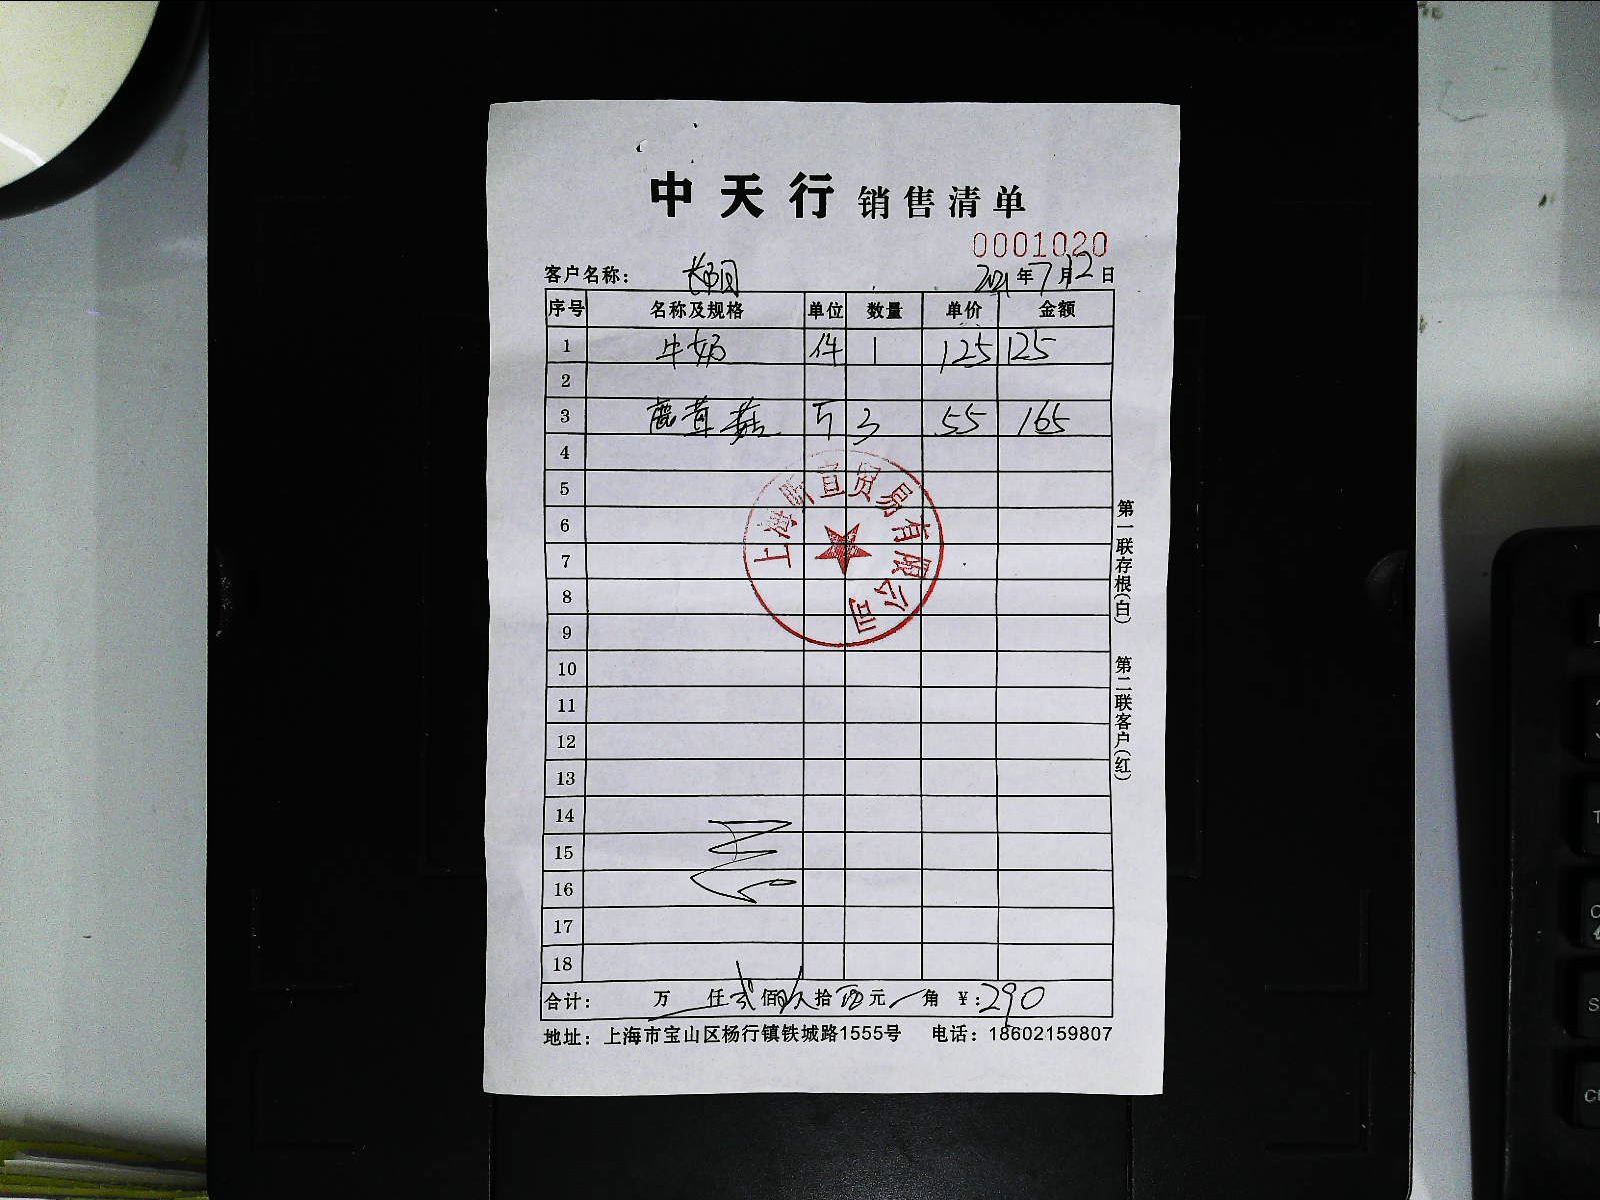 中天行 销售清单
0001020
客户名称： 2021年7月12日
序号 名称及规格 单位 数量 单价 金额
1 牛奶 件 1 125 125
2
3 鹿茸菇 斤 3 55 165
4
5
6
7
8
9
10
11
12
13
14
15
16
17
18
合计： 万 仟 贰佰 拾 元 角 ¥：290
地址：上海市宝山区杨行镇铁城路1555号 电话：18602159807
第一联存根(白) 第二联客户(红)
上海 宣贸易有限公司